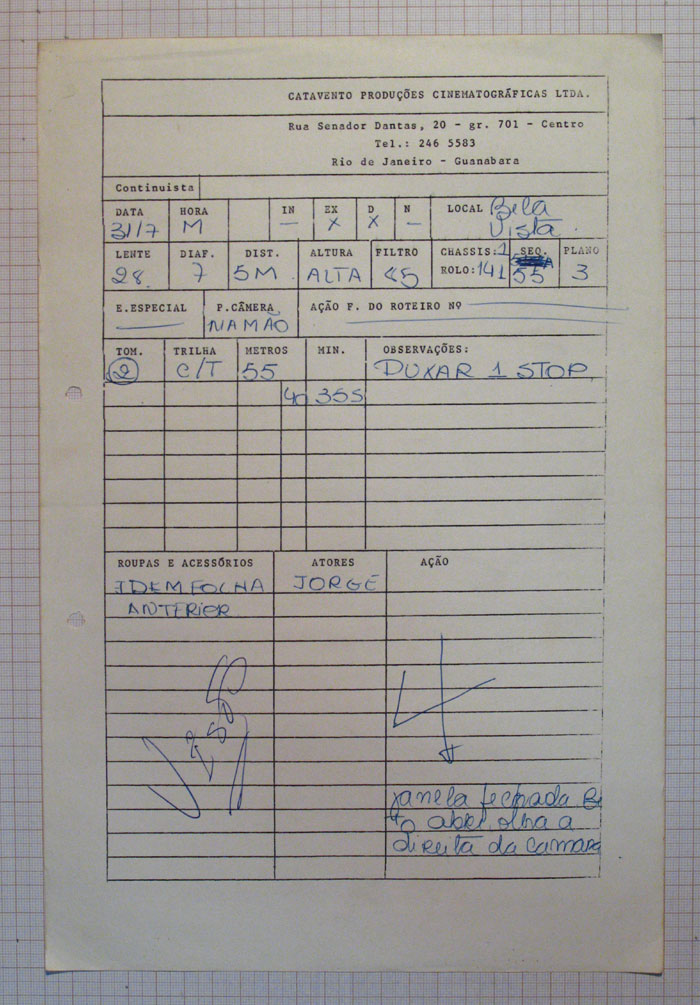 CATAVENTO PRODUÇÕES CINEMATOGRÁFICAS LTDA.
Rua Senador Dantas, 20 - gr. 701 - Centro
Tel.: 246 5583
Rio de Janeiro - Guanabara
Continuista
DATA HORA IN EX D N LOCAL Bela
31/7 M — X X — Vista
LENTE DIAF. DIST. ALTURA FILTRO CHASSIS: 1 SEQ. PLANO
28 7 5M ALTA 85 ROLO: 141 55 3
E.ESPECIAL P.CÂMERA AÇÃO F. DO ROTEIRO Nº
NAMÃO
TOM. TRILHA METROS MIN. OBSERVAÇÕES:
2 C/T 55 PUXAR 1 STOP
40 35S
ROUPAS E ACESSÓRIOS ATORES AÇÃO
IDEM FOLHA JORGE
ANTERIOR
janela fechada Be
to abre, olha a
direita da camara